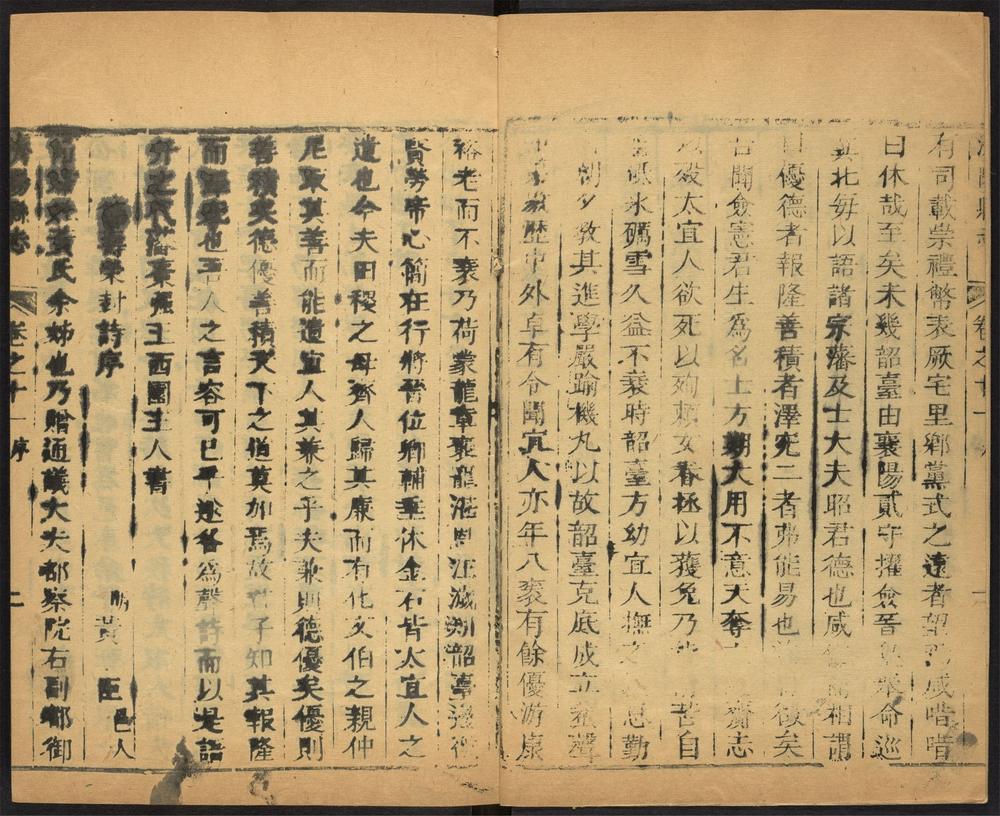 卷之十一
有司載崇禮幣表厥宅里鄉黨式之遠者望咸嘖嘖
曰休哉至矣未幾韶臺由襄陽貳守擢僉晉命巡
冀北每以語諸宗藩及士大夫昭君德也咸相謂
曰優德者報隆善積者澤宪二者弗能易也後矣
聞僉憲君生為名士方期大用不意天奪齋志
以殁太宜人欲死以殉賴女眷拯以獲免乃苦自
冰礪雪久益不衰時韶臺方幼宜人撫之息勤
朝夕敎其進學嚴踰機丸以故韶臺克底成立聲
歷中外卓有令聞宜人亦年八袠有餘優游康
裕老而不衰乃荷蒙龍章褒龍汪濊朔韶臺
賢勞帝心簡在行將晉位卿輔垂休金石皆太宜人之
遺也今夫田稷之母齊人歸其廉而有化文伯之親仲
尼取其善而能遺宜人其兼之乎夫兼則德優矣優則
善積矣德優善積天下之道莫加焉故君子知其報隆
而也吾人之言容可已乎遂各為聲詩而以是語
弁之代藩棗強王西園主人書
榮封詩序
明黄臣邑人
黃氏余姊也乃贈通議大夫都察院右副都御
卷之十一 序 二